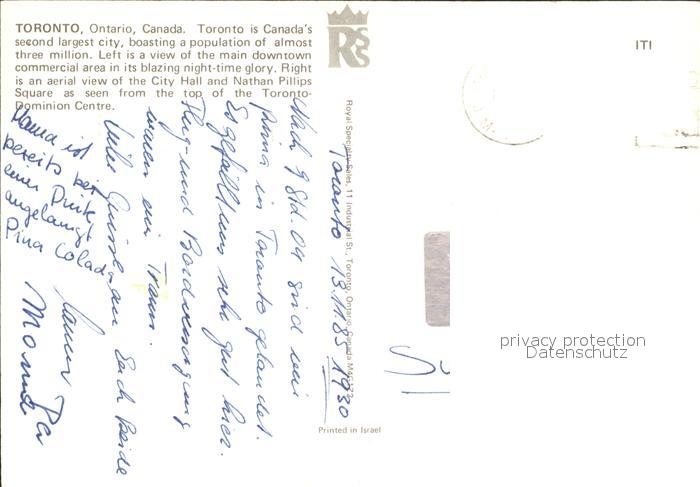 TORONTO, Ontario, Canada. Toronto is Canada's
second largest city, boasting a population of almost
three million. Left is a view of the main downtown
commercial area in its blazing night-time glory. Right
is an aerial view of the City Hall and Nathan Pillips
Square as seen from the top of the Toronto-
Dominion Centre.
ITI
Royal Specialty Sales, 11 Industrial St., Toronto, Ontario, Canada M4G 1Z2
Toronto 13.11.85 1930
Nach 9 Std. 04 sind wir
prima in Toronto gelandet.
Es gefällt uns sehr gut hier.
Flug und Bordversorgung
waren ein Traum.
Liebe Grüsse an Euch Beide
Mama ist
bereits bei
einem Drink
angelangt
Pina Colada
Printed in Israel
privacy protection
Datenschutz